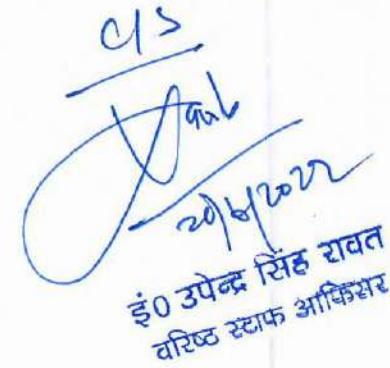 C/S
20/6/2022
इं0 उपेन्द्र सिंह रावत
वरिष्ठ स्टाफ आफिसर